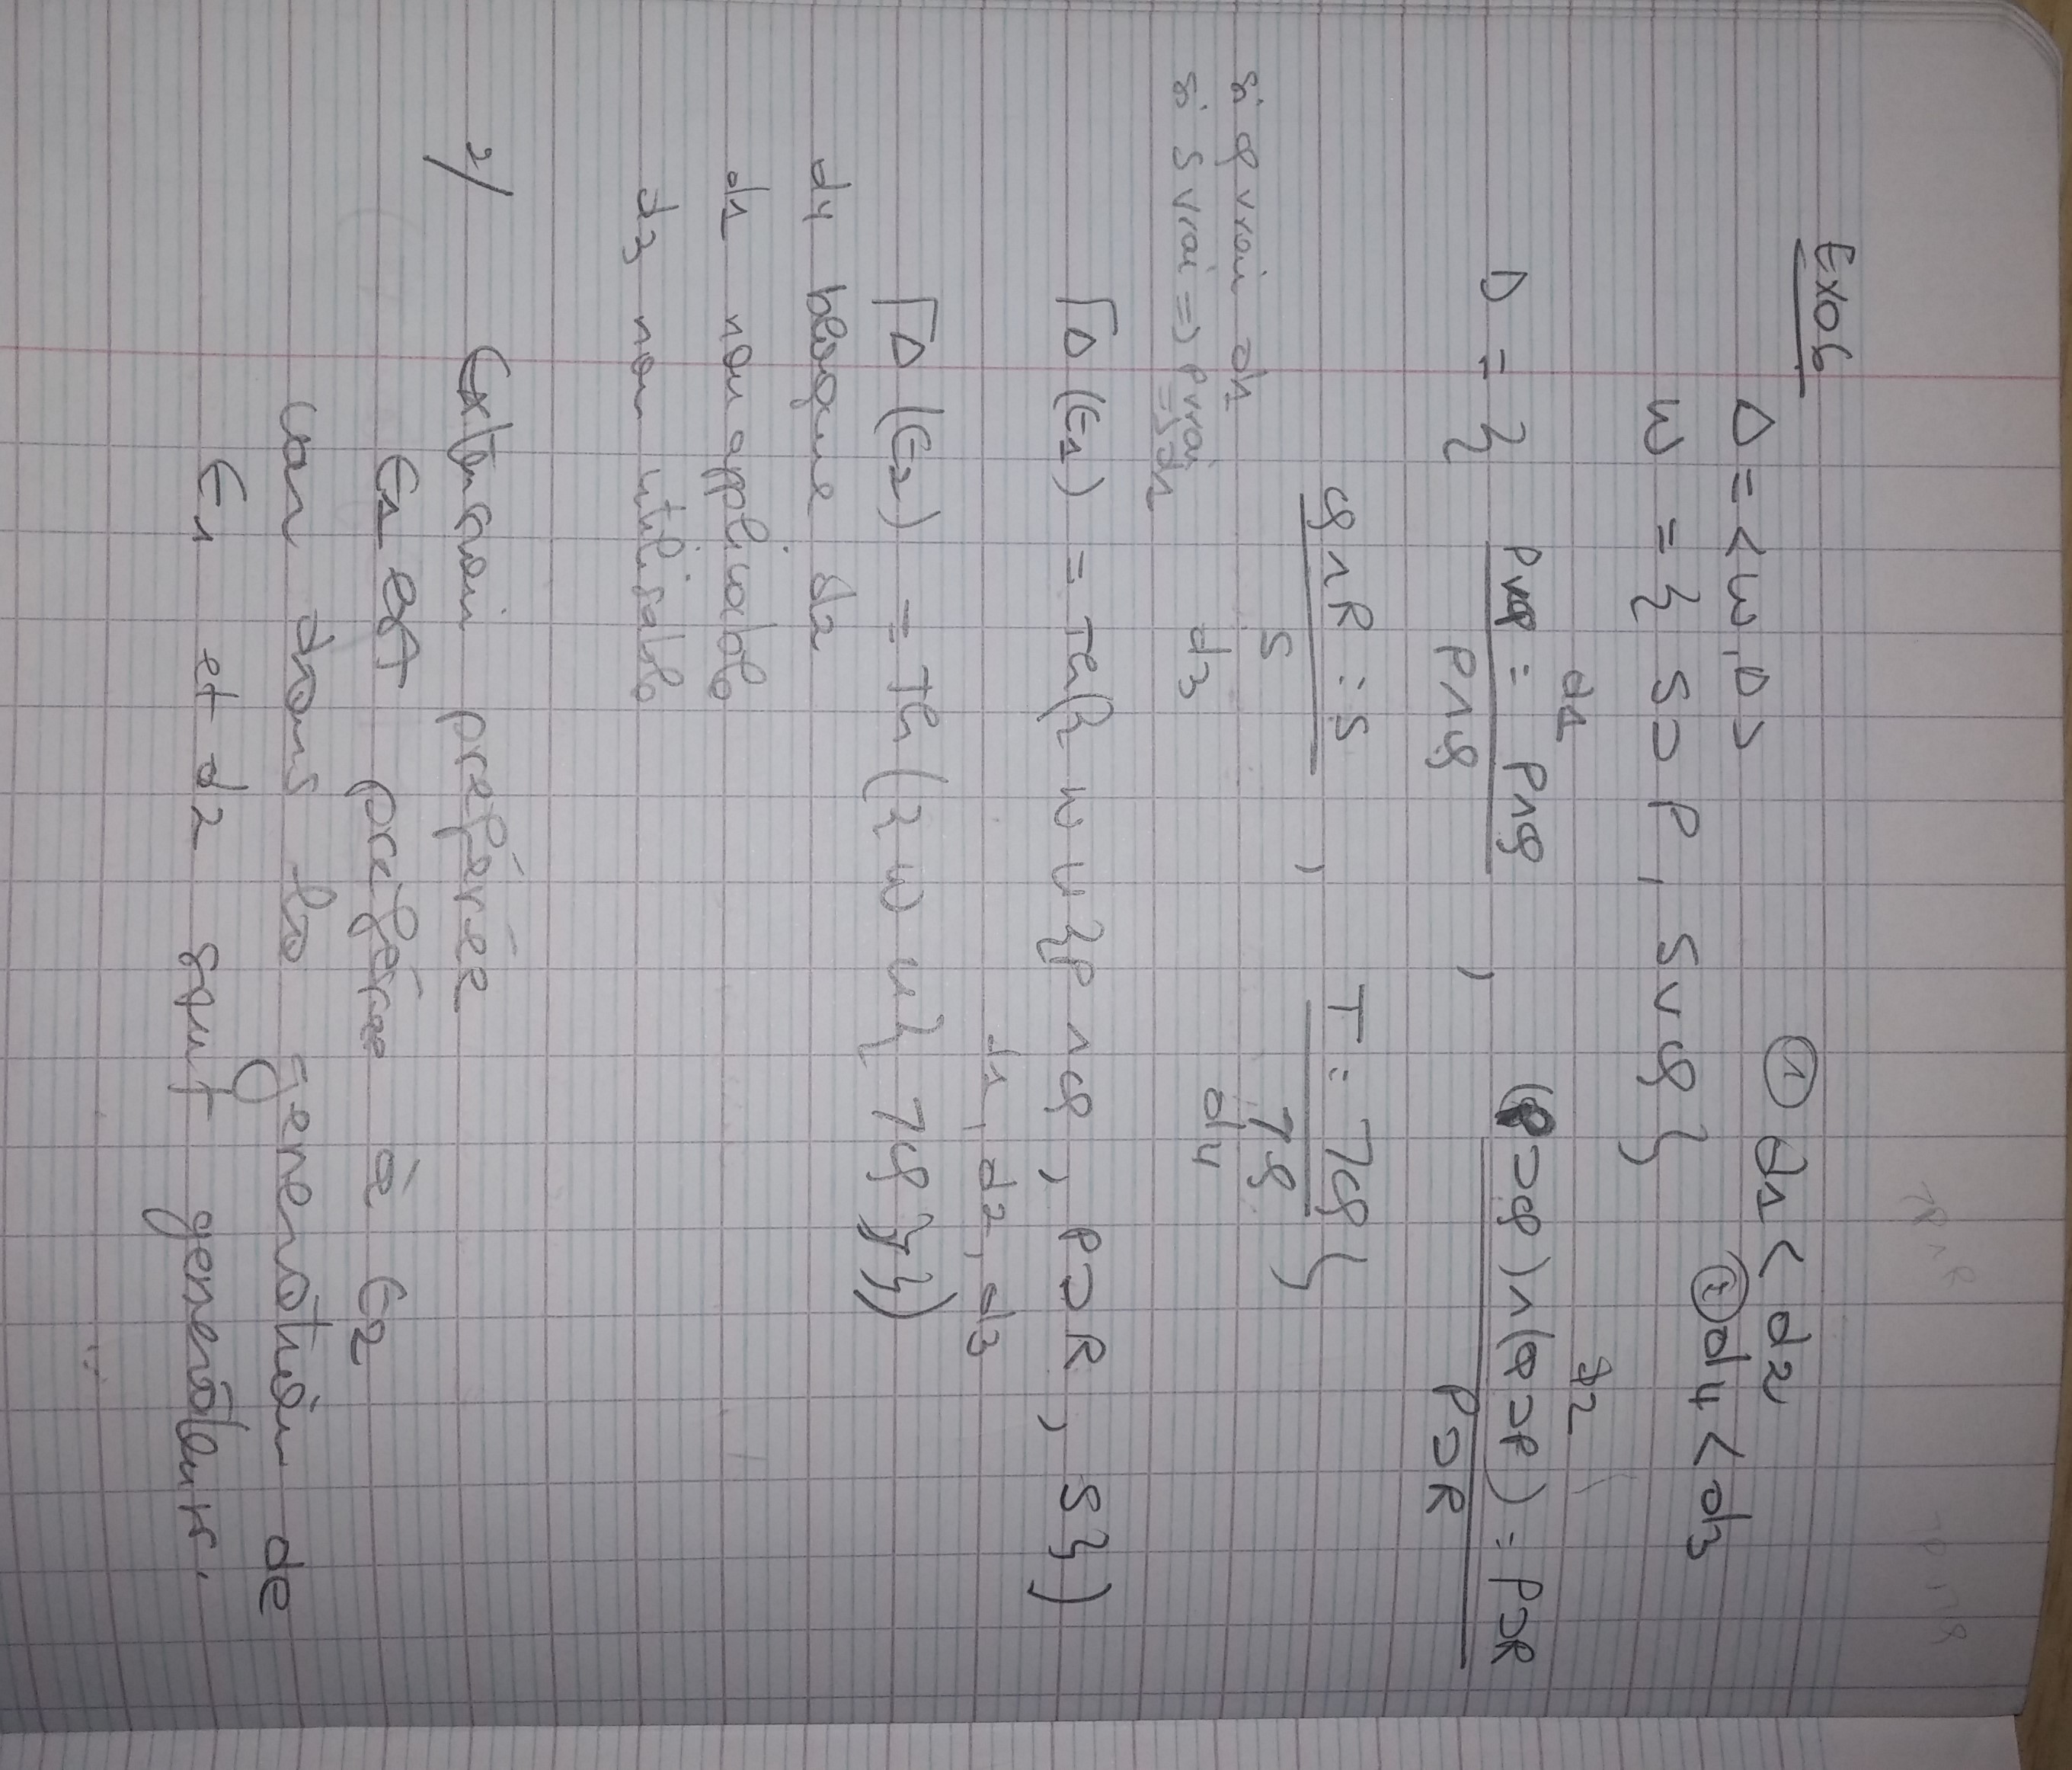 Exo6
① d1 < d2
Δ = <W, D>
② d4 < d3
W = { S ⊃ P, S ∨ Q }
d1 d2
D = { P∨Q : P∧Q / P∧Q , (P⊃Q)∧(Q⊃P) : P⊃R / P⊃R
Q∧R : S / S , T : ¬Q / ¬Q }
d3 d4
si Q vrai d1
si S vrai => P vrai
=> d1
ΓΔ(E1) = Th({ W ∪ {P ∧ Q, P ⊃ R, S})
d1, d2, d3
ΓΔ(E2) = Th({ W ∪ { ¬Q }})
d4 bloque d2
d1 non applicable
d3 non utilisable
2/ Extension préférée
E1 est préférée à E2
car dans la generation de
E1 et d2 sont generateurs.